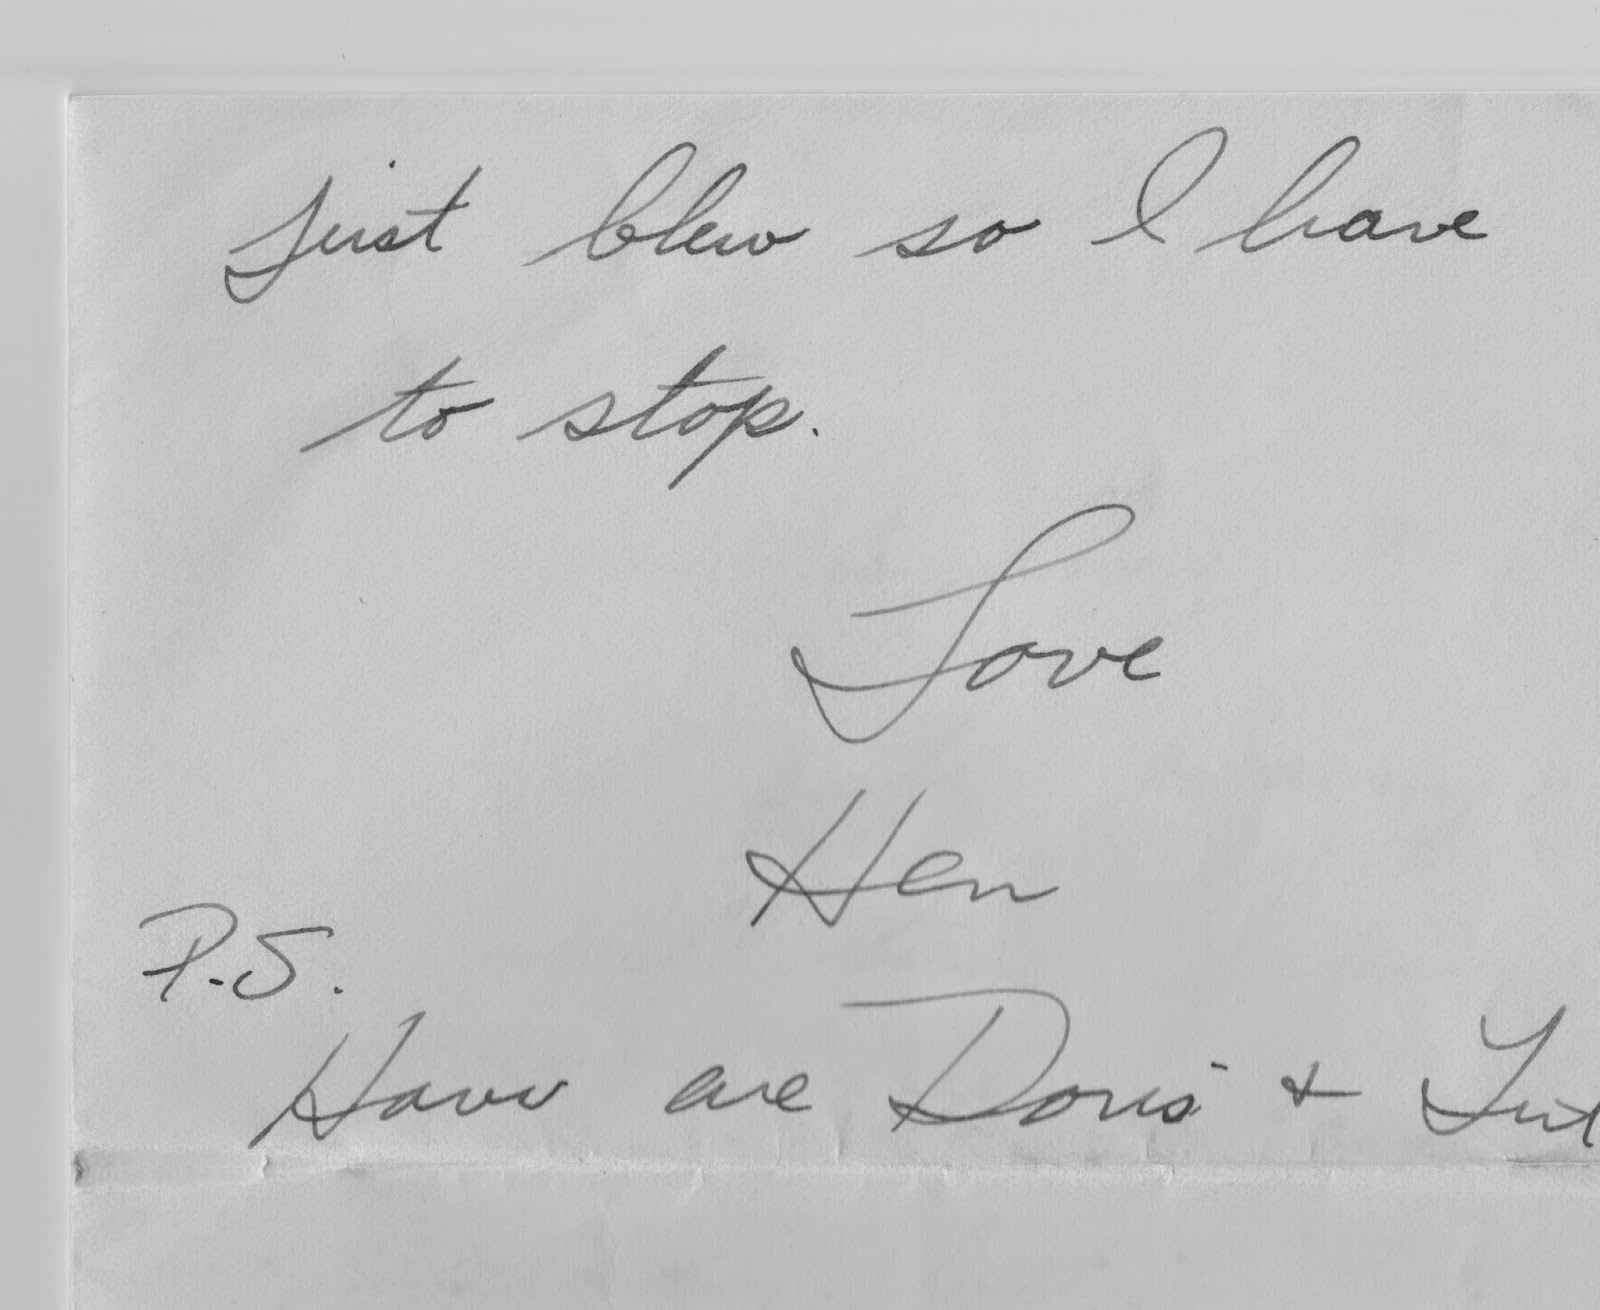 just blew so I have
to stop.
Love
Hen
P.S.
How are Doris &